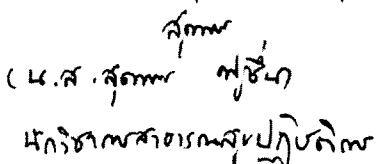 สุดาพร
(น.ส.สุดาพร ฟูชื่น)
นักวิชาการสาธารณสุขปฏิบัติการ